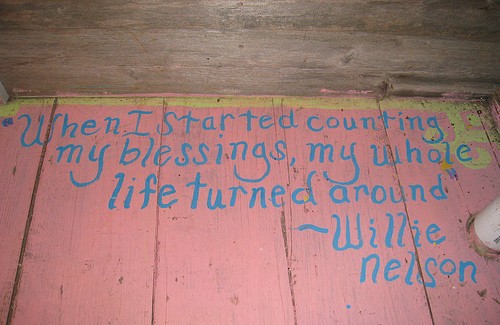 "When I started counting
my blessings, my whole
life turned around
~ Willie
nelson